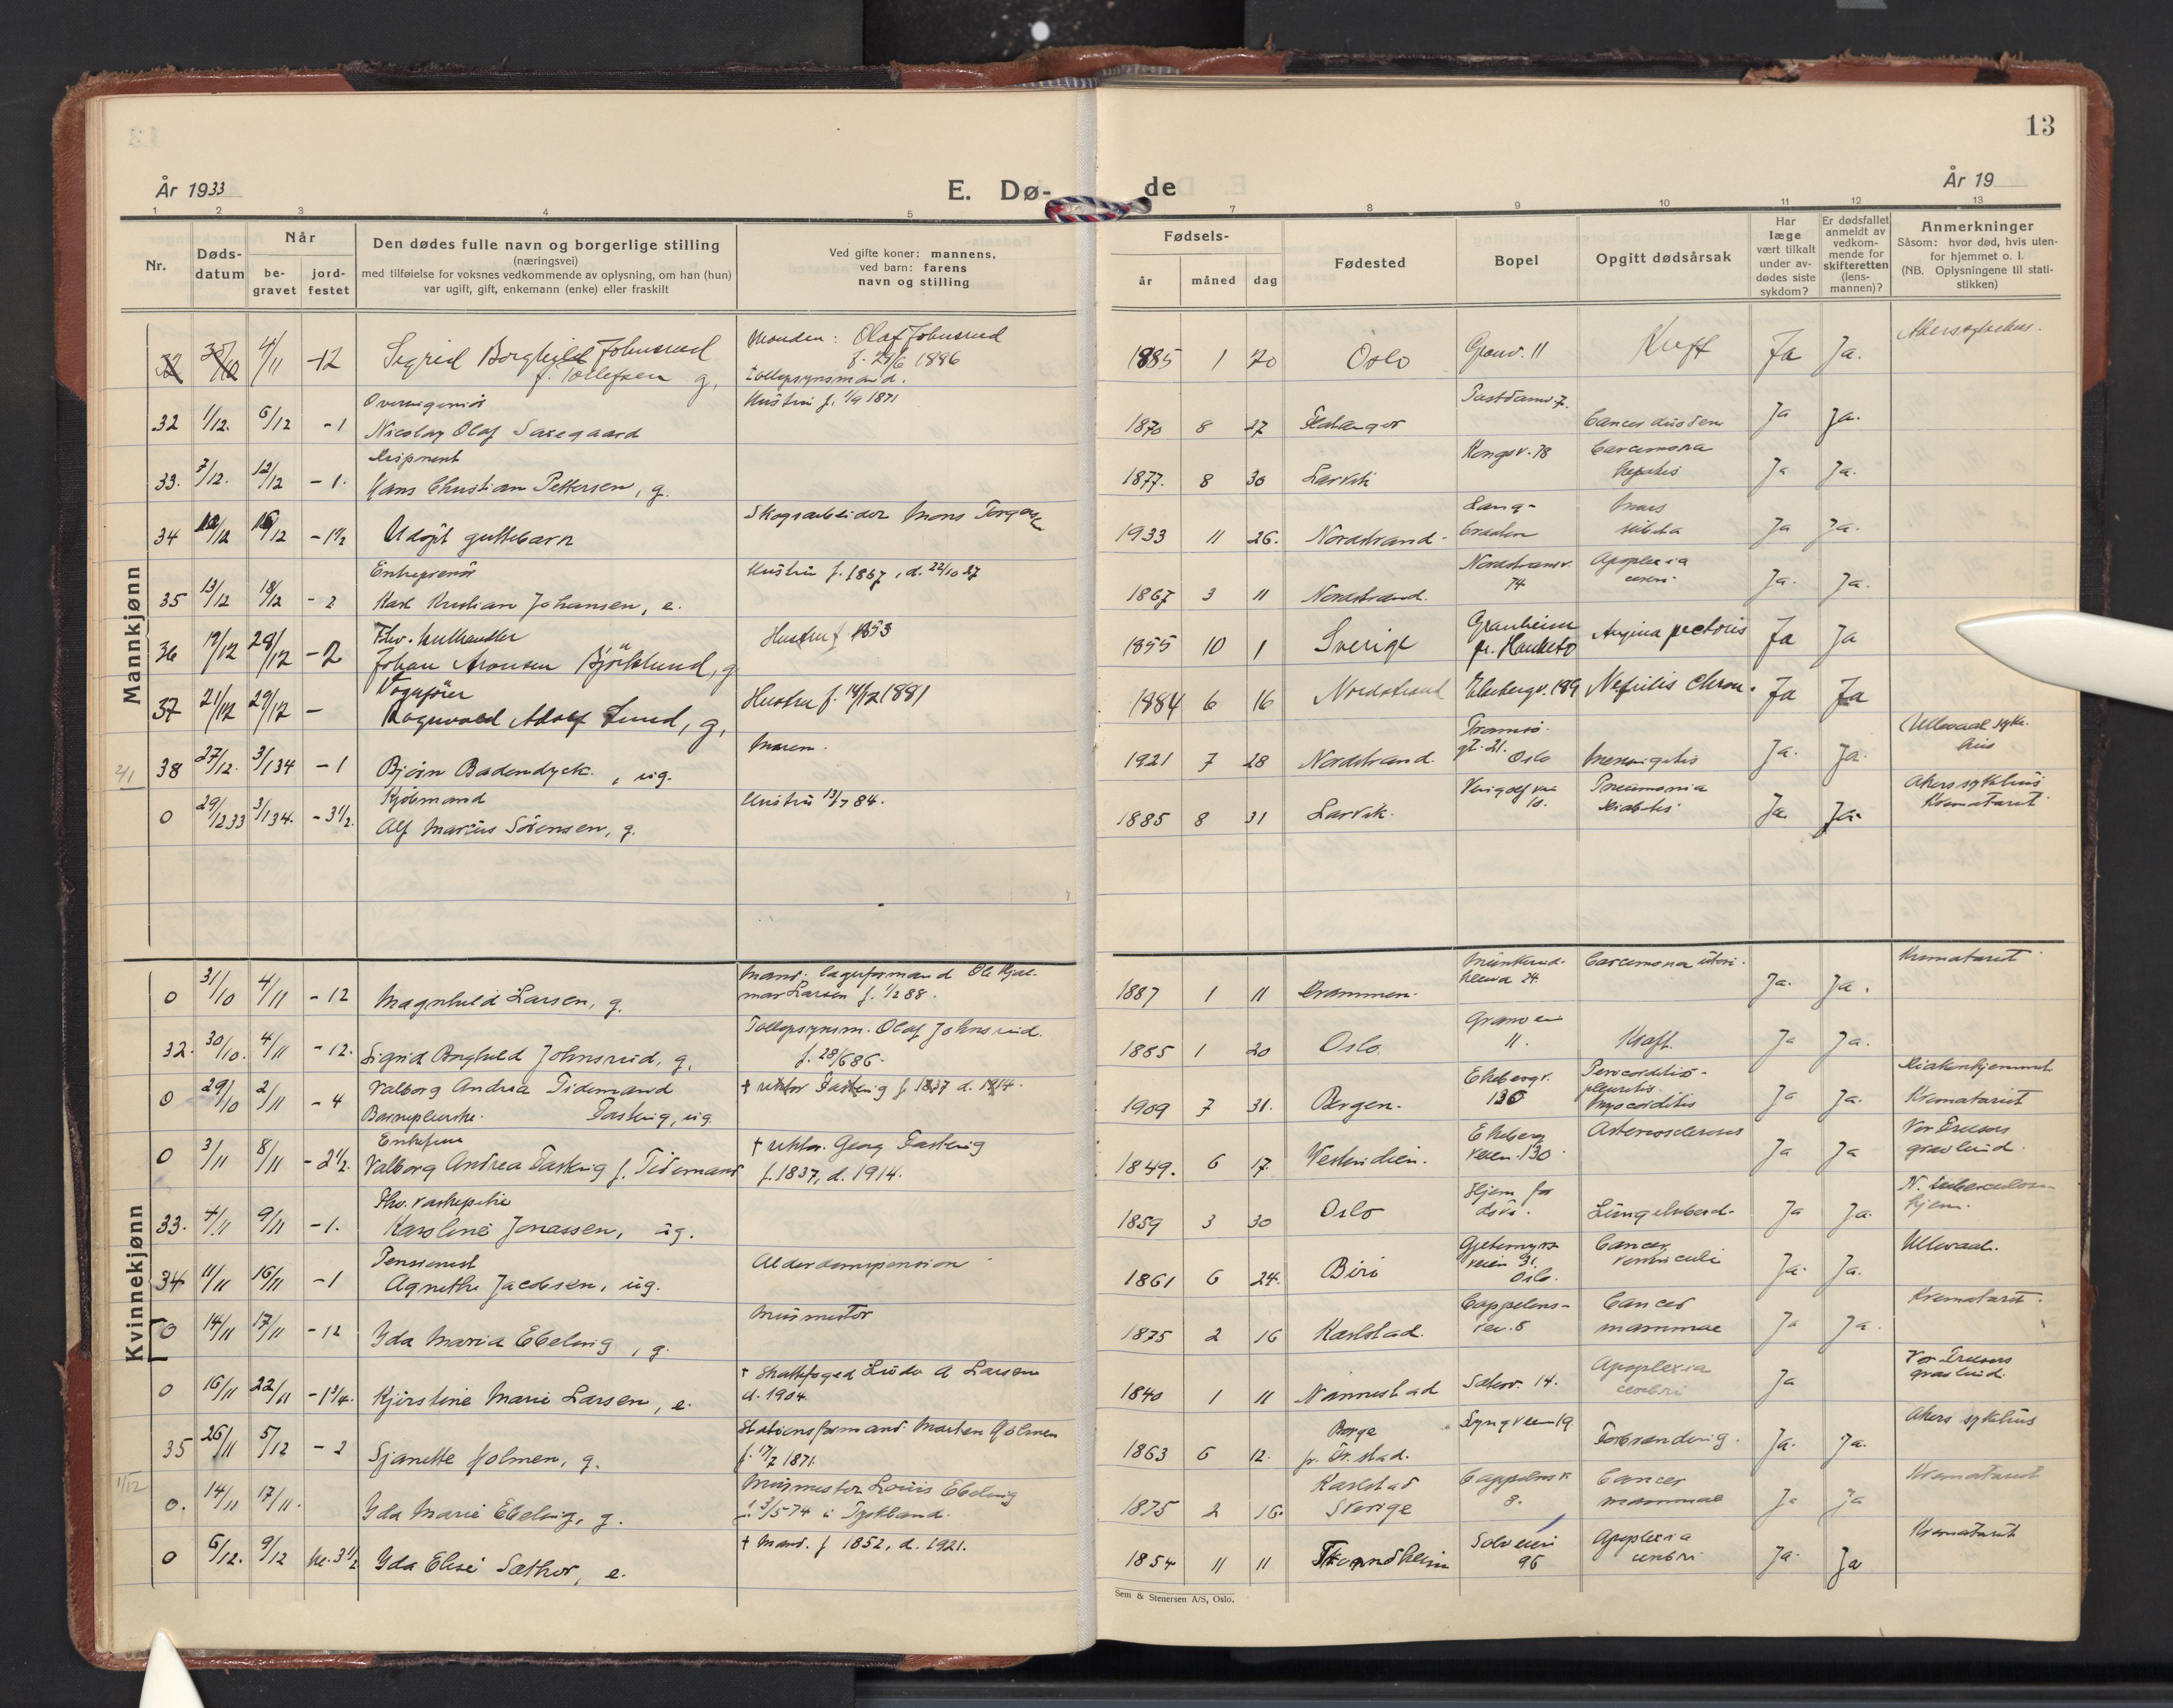 13
År 1933
E. Dø-
de
År 19
1 2 3 4 5 7 8 9 10 11 12 13
Nr.
Døds-
datum
Når
be-
gravet
jord-
festet
Den dødes fulle navn og borgerlige stilling
(næringsvei)
med tilføielse for voksnes vedkommende av oplysning, om han (hun)
var ugift, gift, enkemann (enke) eller fraskilt
Ved gifte koner: mannens,
ved barn: farens
navn og stilling
Fødsels-
år måned dag
Fødested
Bopel
Opgitt dødsårsak
Har
læge
vært tilkalt
under av-
dødes siste
sykdom?
Er dødsfallet
anmeldt av
vedkom-
mende for
skifteretten
(lens-
mannen)?
Anmerkninger
Såsom: hvor død, hvis uten-
for hjemmet o. l.
(NB. Oplysningene til stati-
stikken)
Mannkjønn
32 30/10 4/11 -12 Sigrid Borghild Johnsrud
f. Tollefsen g.
Manden: Olaf Johnsrud
f. 29/6 1886
Tollopsynsmand.
1885 1 20 Oslo Granv. 11 Kreft Ja Ja. Akers sykehus.
32 1/12. 6/12 -1 Overingeniør
Nicolay Olaf Saxegaard
Hustru f. 1/9 1871
1870 8 27 Stavanger Ja Ja.
33. 7/12. 12/12 -1. Disponent
Hans Christian Pettersen, g.
1877. 8 30 Larvik Kongsv. 78 Carcinoma
hepatis Ja Ja.
34 12/12 16/12 -1½ Udøpt guttebarn
Skogsarbeider Mons Torgersen
1933 11 26. Nordstrand Lang-
braaten Mors
subita Ja Ja.
35 13/12 18/12 -2 Entreprenør
Karl Kristian Johansen, e.
Hustru f. 1867, d. 22/10 27
1867 3 11 Nordstrand. Nordstrandv.
74 Apoplexia
cerebri Ja. Ja.
36 19/12 28/12 -2 Fhv. kulhandler
Johan Aronsen Björklund, g
Hustru f 1853
1855 10 1 Sverige Granheim
pr. Hauketo Angina pectoris Ja Ja
37 21/12 29/12 - Vognfører
Ragnvald Adolf Lund, g.
Hustru f. 14/12 1881
1884 6 16 Nordstrand Ekebergv. 189 Nefritis chron. Ja Ja
2/1 38 27/12. 3/1 34 -1 Bjørn Badendyck., ug.
1921 7 28 Nordstrand. Tromsø-
gt. 21. Oslo Meningitis Ja. Ja. Ullevaal syke-
hus
0 29/12 33 3/1 34. -3½. Kjøbmand
Alf Marius Sørensen, g.
Hustru 13/7 84.
1885 8 31 Larvik. Pneumonia
Diabetes Ja Ja. Akers sykehus
Krematoriet
Kvinnekjønn
0 31/10 4/11 -12 Magnhild Larsen, g.
Mand: lagerformand Ole Hjal-
mar Larsen f. 1/2 88.
1887 1 11 Drammen. Munkerud-
kleiva 24. Carcinoma uteri. Ja. Ja. Krematoriet
32. 30/10. 4/11 -12. Sigrid Borghild Johnsrud, g.
Tollopsynsm. Olaf Johnsrud.
f. 28/6 86.
1885 1 20 Oslo. Granveien
11. Kræft. Ja Ja.
0 29/10 2/11 -4 Valborg Andrea Tidemand
Barnepleierske. Fasting, ug.
† rektor Fasting f 1837 d. 1914.
1909 7 31. Bergen. Ekebergv.
130 Pericorditis-
pleuritis
Myocorditis Ja Ja. Diakonhjemmet
Krematoriet
0 3/11 8/11 -2½. Enkefrue
Valborg Andrea Fasting f. Tidemand
† rektor Georg Fasting
f. 1837, d. 1914.
1849. 6 17. Vestindien. Ekeberg
veien 130 Arteriosclerosis Ja Ja Vor Frelsers
gravlund.
33. 4/11 9/11 -1. Fhv. vaskepike
Karoline Jonassen, ug.
1859 3 30 Oslo Hjem for
døve. Ja Ja. N. tuberculose-
hjem.
34 11/11 16/11 -1 Pensionist
Agnethe Jacobsen, ug.
Alderdomspension
1861 6 24. Biri Gjetemyrs
veien 31.
Oslo. Cancer
ventriculi Ja. Ja. Ullevaal.
0 14/11 17/11 -12 Yda Maria Ebeling, g.
Murmester
1875 2 16 Karlstad. Cappelens-
vei. 8 Cancer
mammae Ja Ja. Krematoriet.
0 16/11 22/11 -1¾. Kjerstine Marie Larsen, e.
† Skattefoged Ludv. A Larsen
d. 1904.
1840 1 11 Nannestad Solvv. 14. Apoplexia
cerebri Ja Vor Frelsers
gravlund.
35 26/11 5/12 -2 Sjanette Holmen, g.
Stationsformand Morten Holmen
f. 17/2 1871.
1863 6 12. Borge
pr. Fr.stad. Lyngveien 19 Forbrænding. Ja. Ja. Akers sykehus
1/12 0. 14/11 17/11. Yda Marie Ebeling, g.
Murmester Louis Ebeling
f. 3/5 74 i Tyskland.
1875 2 16. Karlstad
Sverige Cappelens v
8. Cancer
mammae Ja Ja Krematoriet
0 6/12. 9/12 kl. 3½ Yda Elise Sæther, e.
† Mand. f 1852, d. 1921.
1854 11 11 Trondheim Solveien
96 Apoplexia
cerebri Ja. Ja Krematoriet
Sem & Stenersen A/S, Oslo.